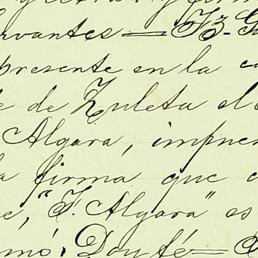 rvantes — B. G
presente en la c
e de Zuleta el
Algara, impue
a firma que
e, "F. Algara" es
mó. Doy fé —